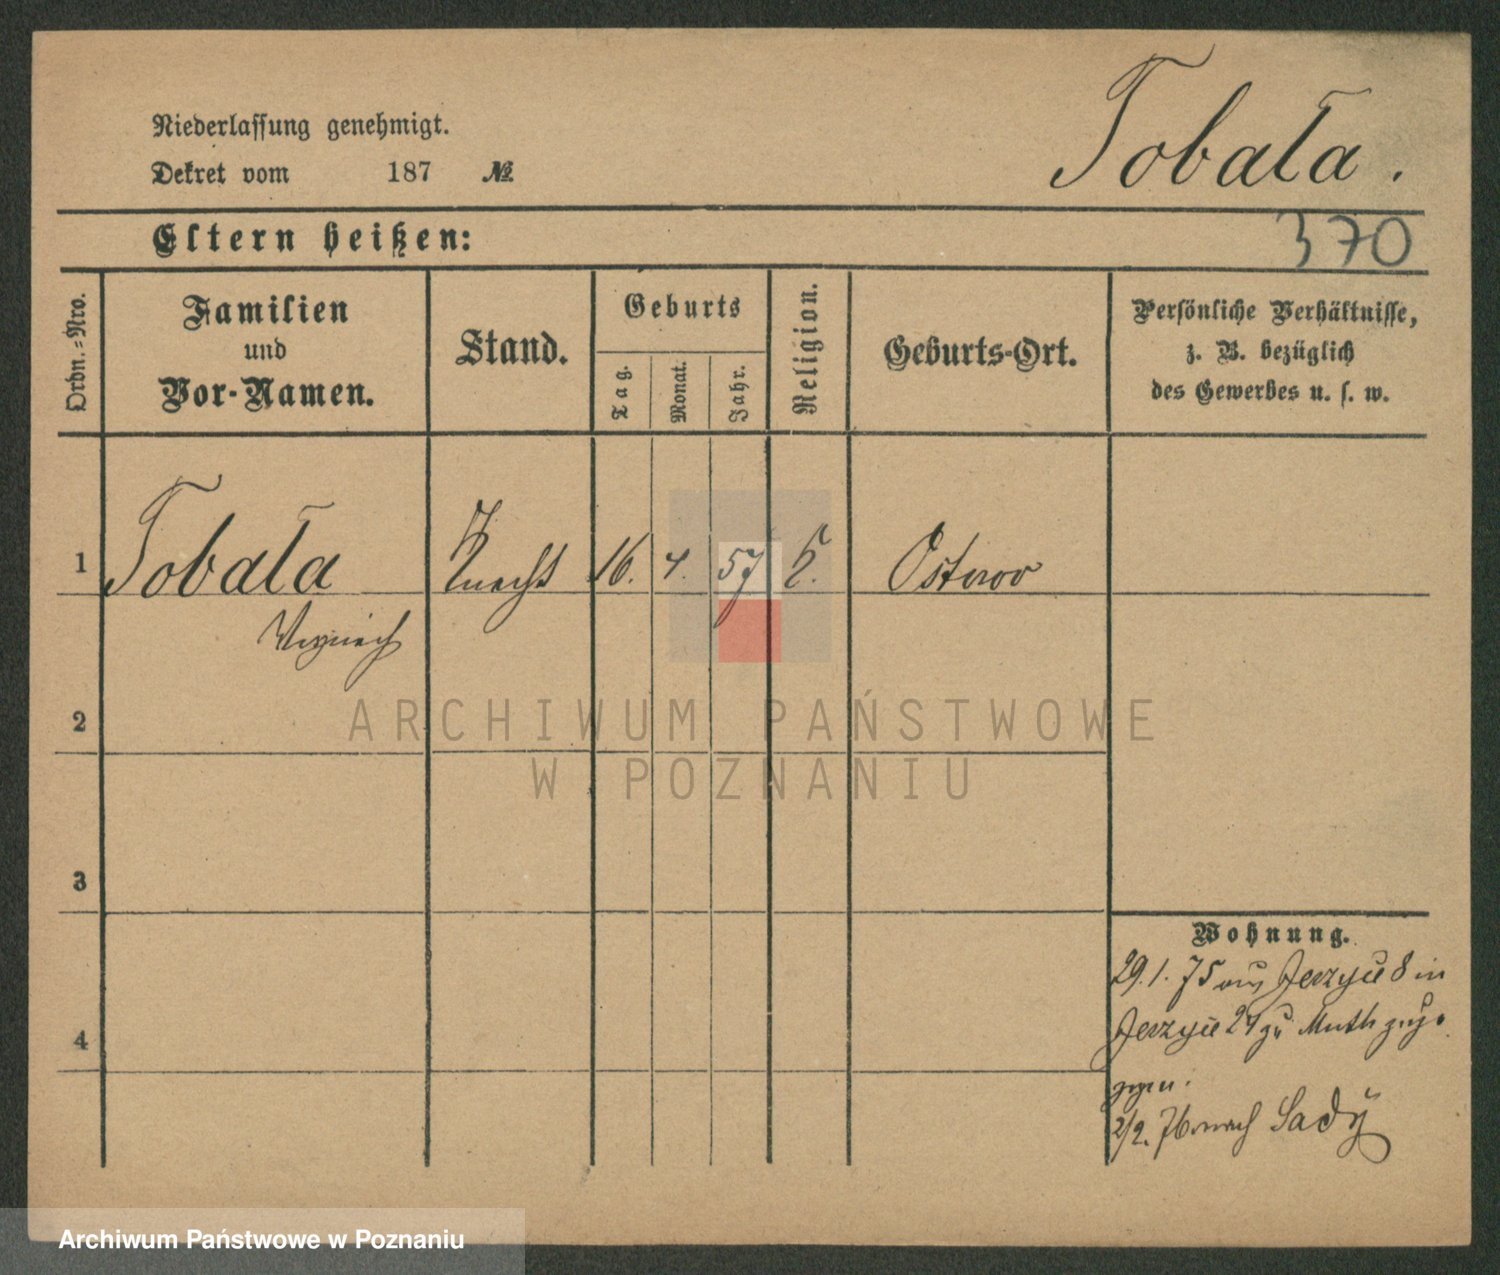 Tobała.
Niederlassung genehmigt.
Dekret vom 187 №
370
Eltern heißen:
Ordn.-Nro.
Familien
und
Vor-Namen.
Stand.
Geburts
Tag.
Monat.
Jahr.
Religion.
Geburts-Ort.
Persönliche Verhältnisse,
z. B. bezüglich
des Gewerbes u. s. w.
1 Tobała Knecht 16. 4. 57 k. Ostrow
2
3
4
Wohnung.
29.1.75 aus Jerzyce 8 in
Jerzyce 24 zu Muth
2/2. 76 nach Sady
ARCHIWUM PAŃSTWOWE
W POZNANIU
Archiwum Państwowe w Poznaniu